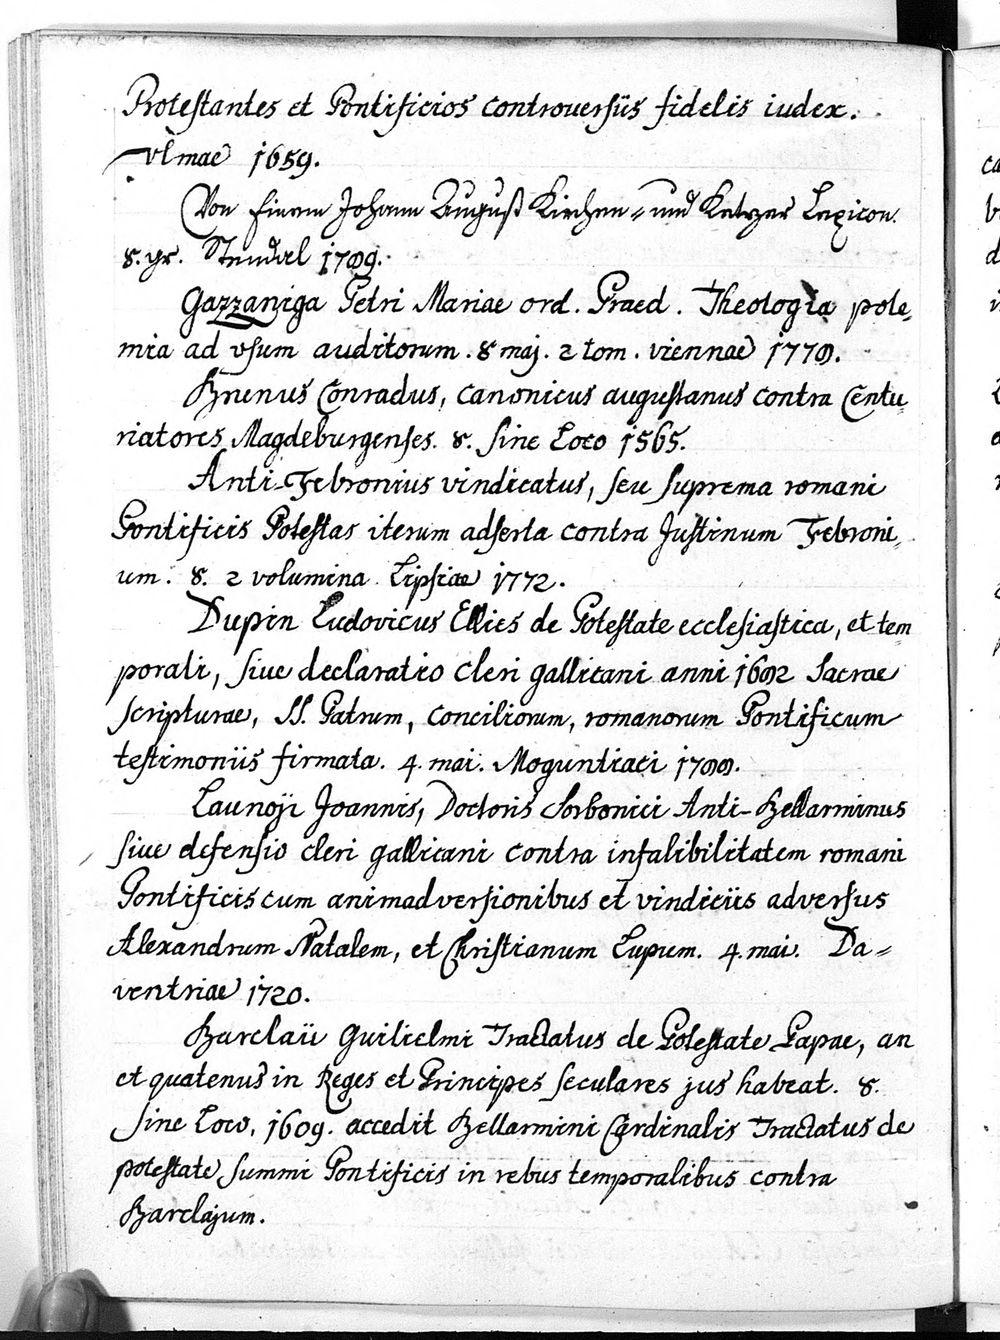 Protestantes et Pontificios controversiis fidelis iudex.
vlmae 1659.
Von Einem Johann August Kirchen- und Ketzer Lexicon.
8. gr. Stendal 1789.
Gazzaniga Petri Mariae ord. Praed. Theologia pole-
mica ad vsum auditorum. 8 maj. 2 tom. viennae 1778.
Brunus Conradus, canonicus augustanus contra Centu-
riatores Magdeburgenses. 8. sine Loco 1565.
Anti-Febronius vindicatus, seu suprema romani
Pontificis Potestas iterum adserta contra Justinum Febroni-
um. 8. 2 volumina Lipsiae 1772.
Dupin Ludovicus Ellies de Potestate ecclesiastica, et tem
porali, siue declaratio cleri gallicani anni 1682 Sacrae
scripturae, SS. Patrum, conciliorum, romanorum Pontificum
testimoniis firmata. 4. mai. Moguntiaci 1788.
Launoji Joannis, Doctoris Sorbonici Anti-Bellarminus
siue defensio cleri gallicani contra infalibilitatem romani
Pontificis cum animadversionibus et vindiciis adversus
Alexandrum Natalem, et Christianum Lupum. 4. mai. Da-
ventriae 1720.
Barclaii Guilielmi Tractatus de Potestate Papae, an
et quatenus in Reges et Principes seculares jus habeat. 8.
sine Loco, 1609. accedit Bellarmini Cardinalis Tractatus de
potestate summi Pontificis in rebus temporalibus contra
Barclajum.